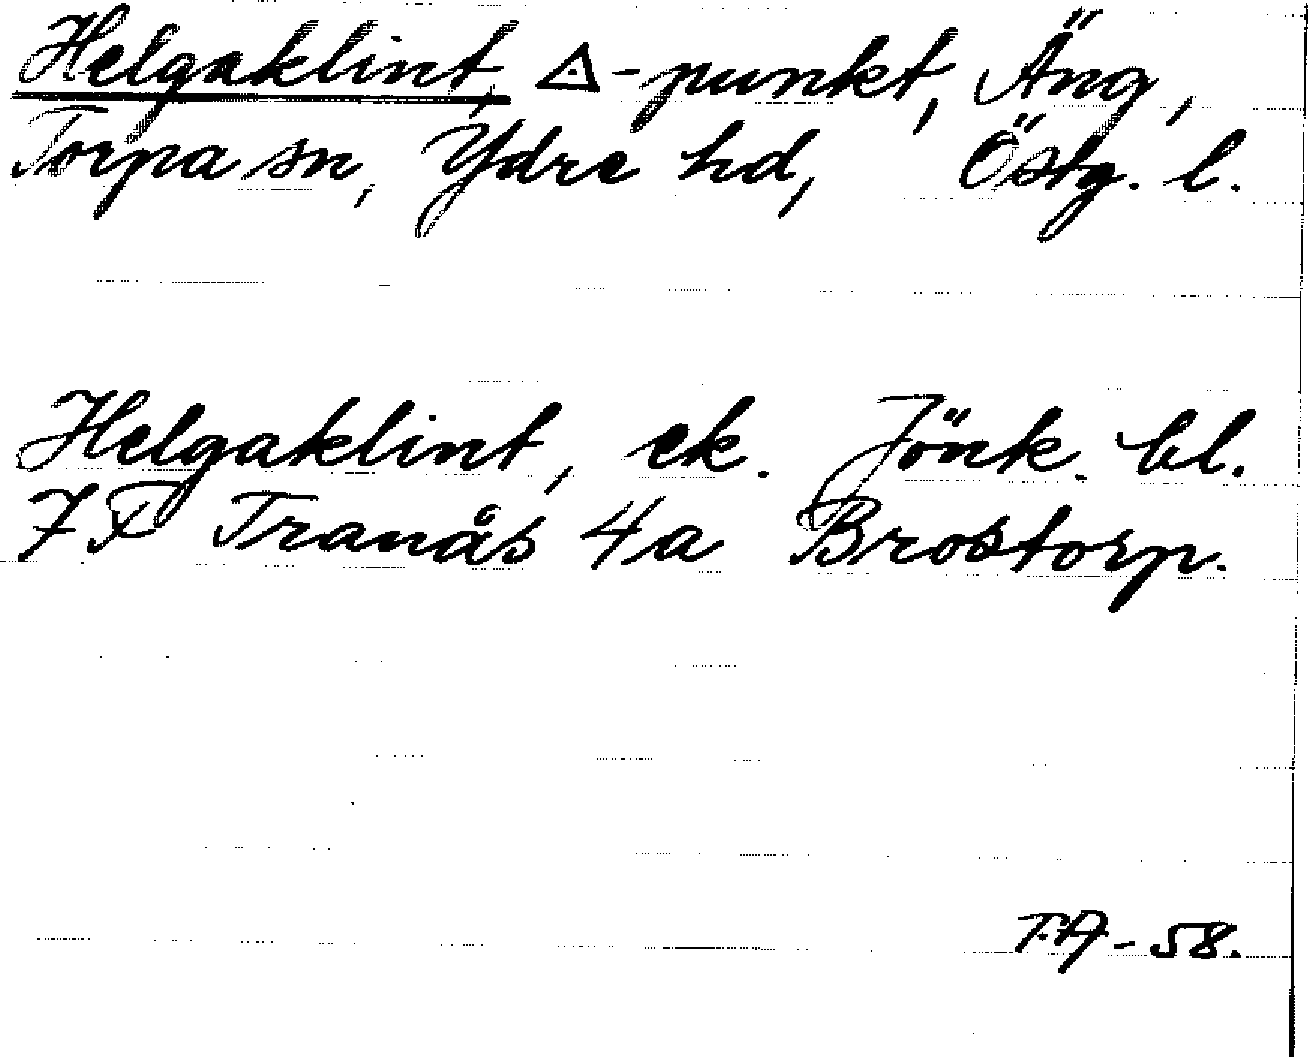 Helgaklint, △-punkt, Äng,
Torpa sn, Ydre hd, Östg. l.
Helgaklint, ek. Jönk. bl.
7F Tranås 4a Brostorp.
T.A-58.